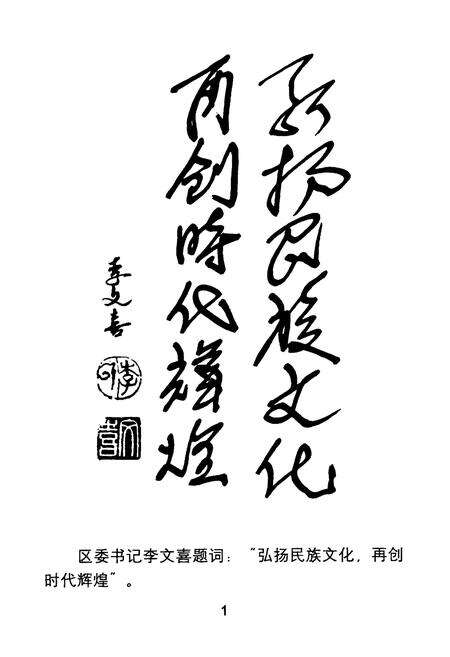 弘扬民族文化
再创時代輝煌
李文喜
李文喜
区委书记李文喜题词：“弘扬民族文化，再创
时代辉煌”。
1